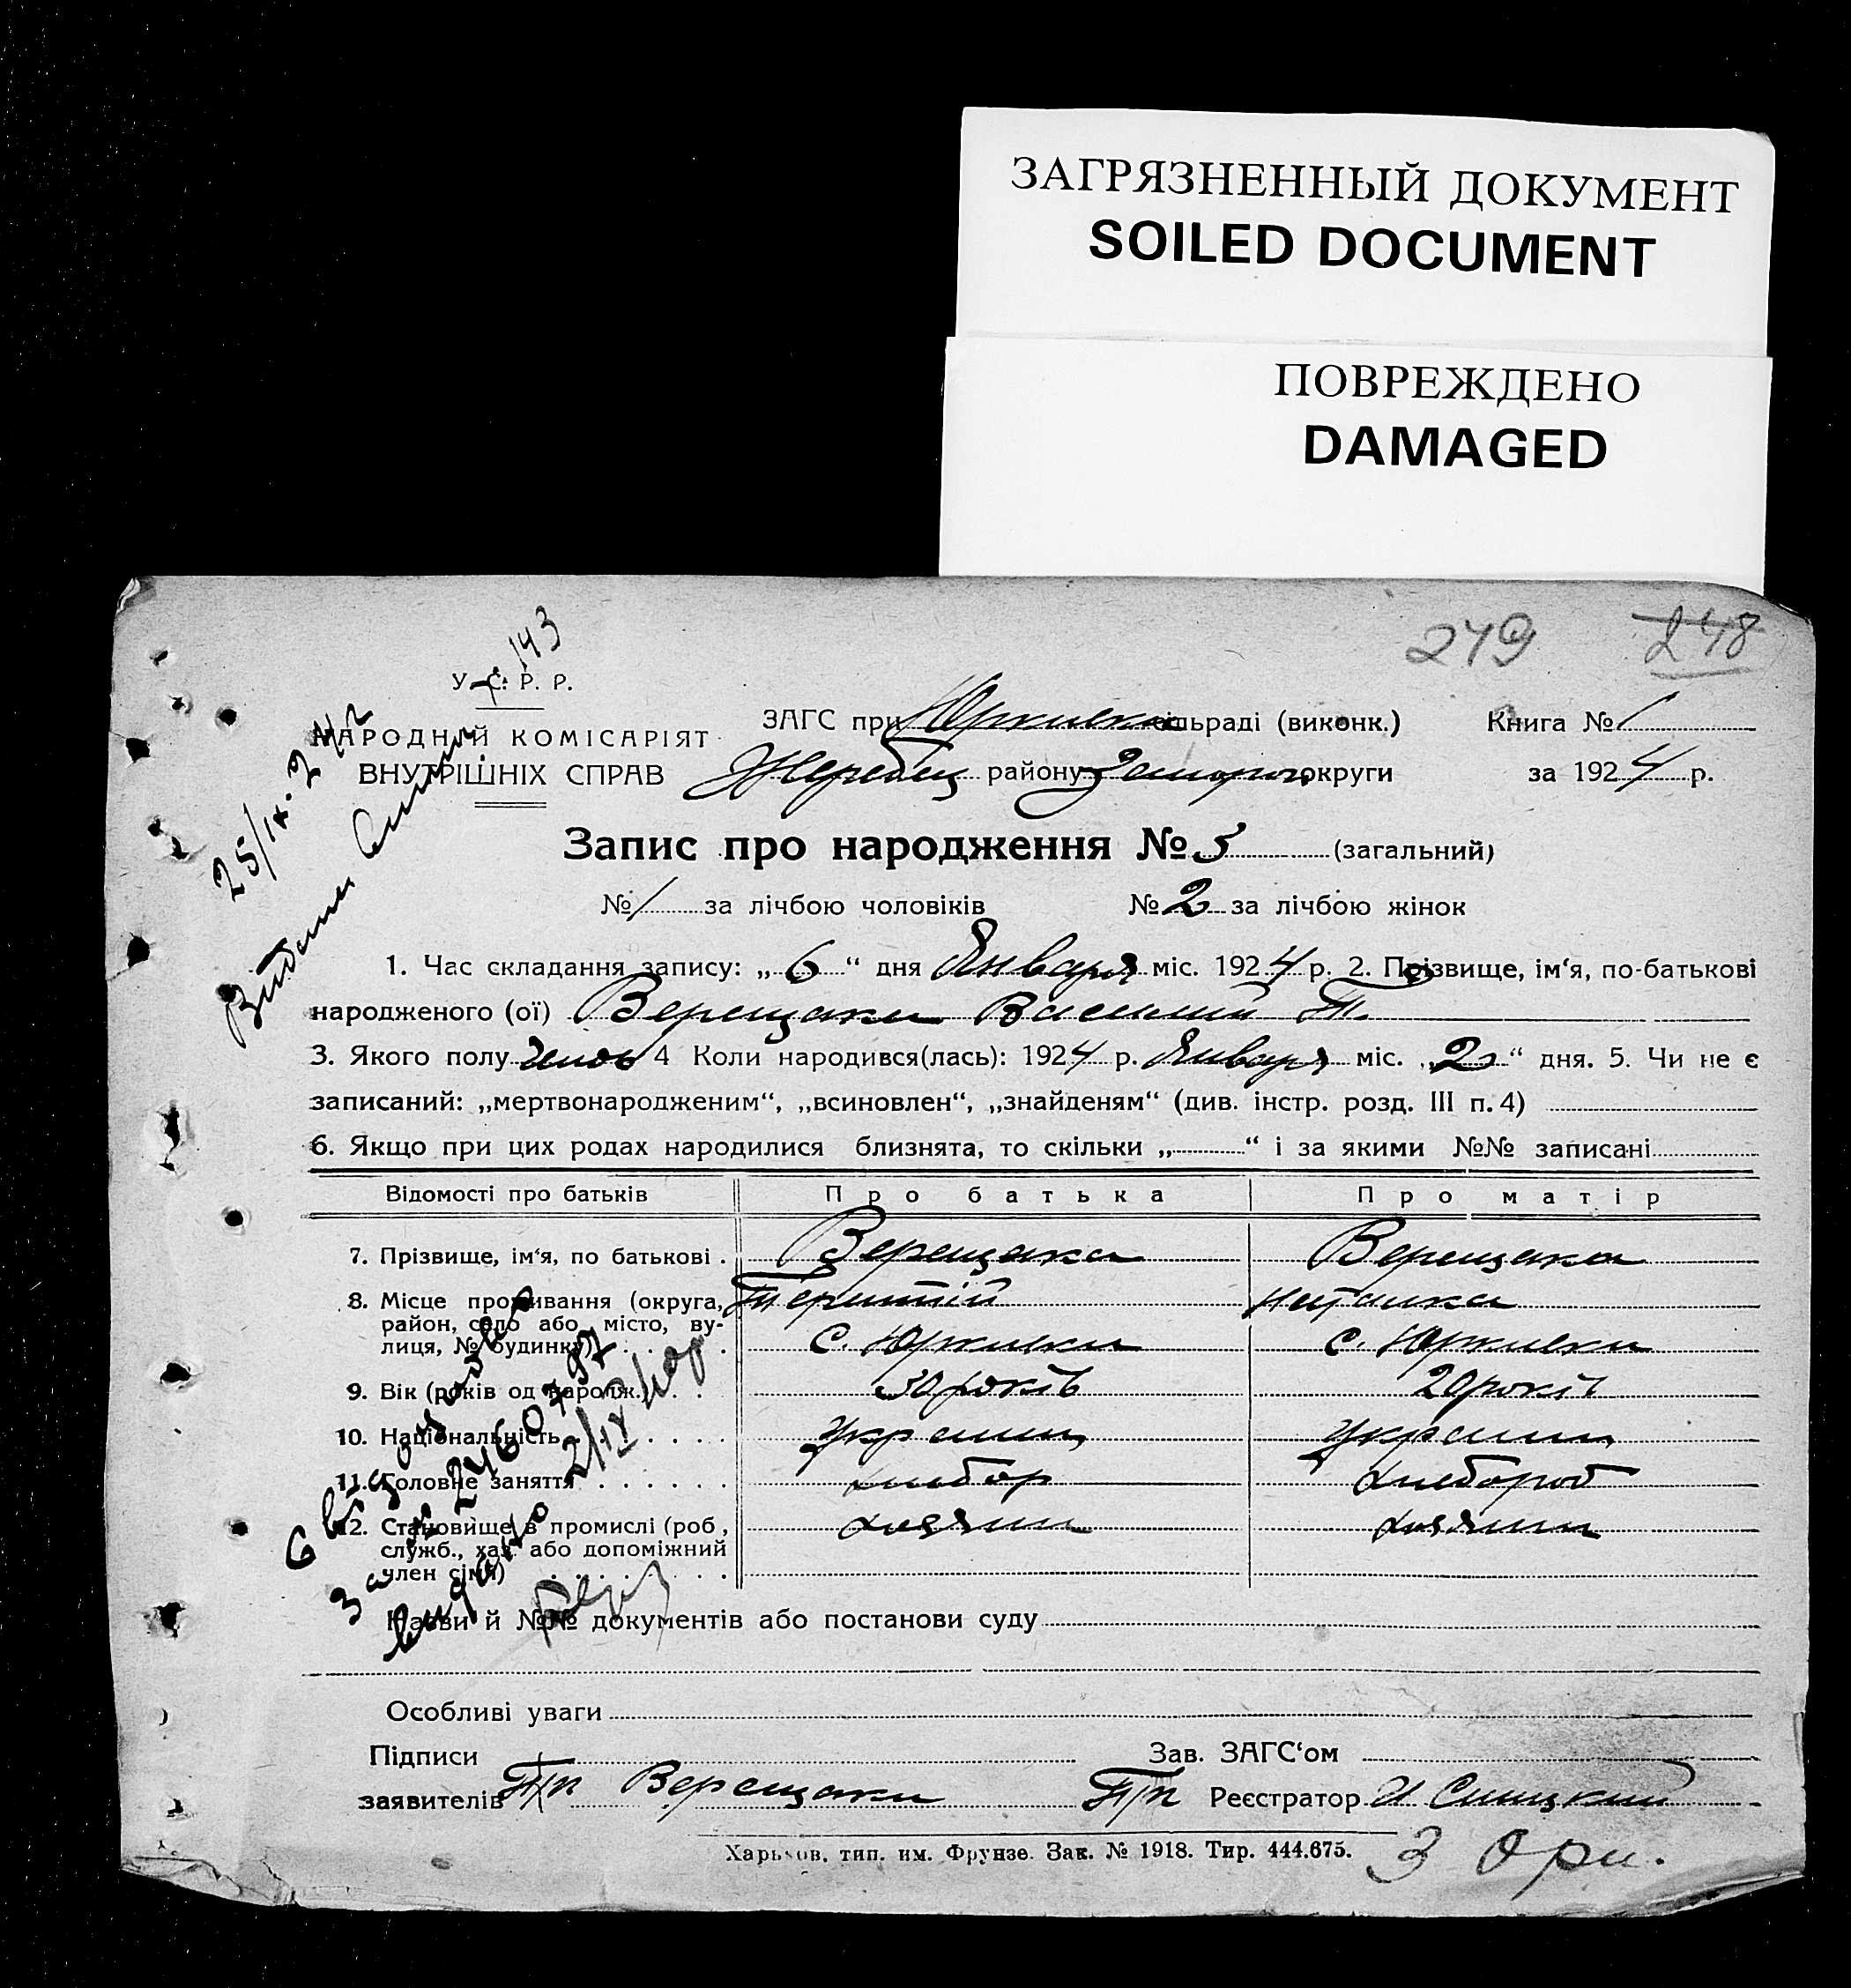 ЗАГРЯЗНЕННЫЙ ДОКУМЕНТ
SOILED DOCUMENT
ПОВРЕЖДЕНО
DAMAGED
279 248
143
У. С. Р. Р.
НАРОДНИЙ КОМІСАРІЯТ
ВНУТРІШНІХ СПРАВ
ЗАГС при Юркивск сільраді (виконк.) Книга № 1
Жеребец району Запорож округи за 1924 р.
Запис про народження № 5 (загальний)
№ 1 за лічбою чоловіків № 2 за лічбою жінок
1. Час складання запису: „ 6 “ дня Января міс. 1924 р. 2. Прізвище, ім‘я, по-батькові
народженого (ої) Верещака Василий Т.
3. Якого полу 4 Коли народився(лась): 1924 р. Января міс. „2“ дня. 5. Чи не є
записаний: „мертвонародженим“, „всиновлен“, „знайденям“ (див. інстр. розд. III п. 4)
6. Якщо при цих родах народилися близнята, то скільки „ “ і за якими №№ записані
Відомості про батьків Про батька Про матір
7. Прізвище, ім‘я, по батькові . Верещака Верещака
8. Місце проживання (округа, район, село або місто, вулиця, № будинку) Терентій Наталка
с. Юркивки с. Юркивки
9. Вік (років од народж.) 30 років 20 років
10. Національність Украинц Украин
11. Головне заняття хлибор хлебороб
12. Становище в промислі (роб, служб., хаз. або допоміжний член сім‘ї) хозяин хозяин
Назви й №№ документів або постанови суду
Особливі уваги
Підписи
заявителів П/п Верещака
Зав. ЗАГС‘ом
П/п Реєстратор И Синицкий
Харьков, тип. им. Фрунзе. Зак. № 1918. Тир. 444.675.